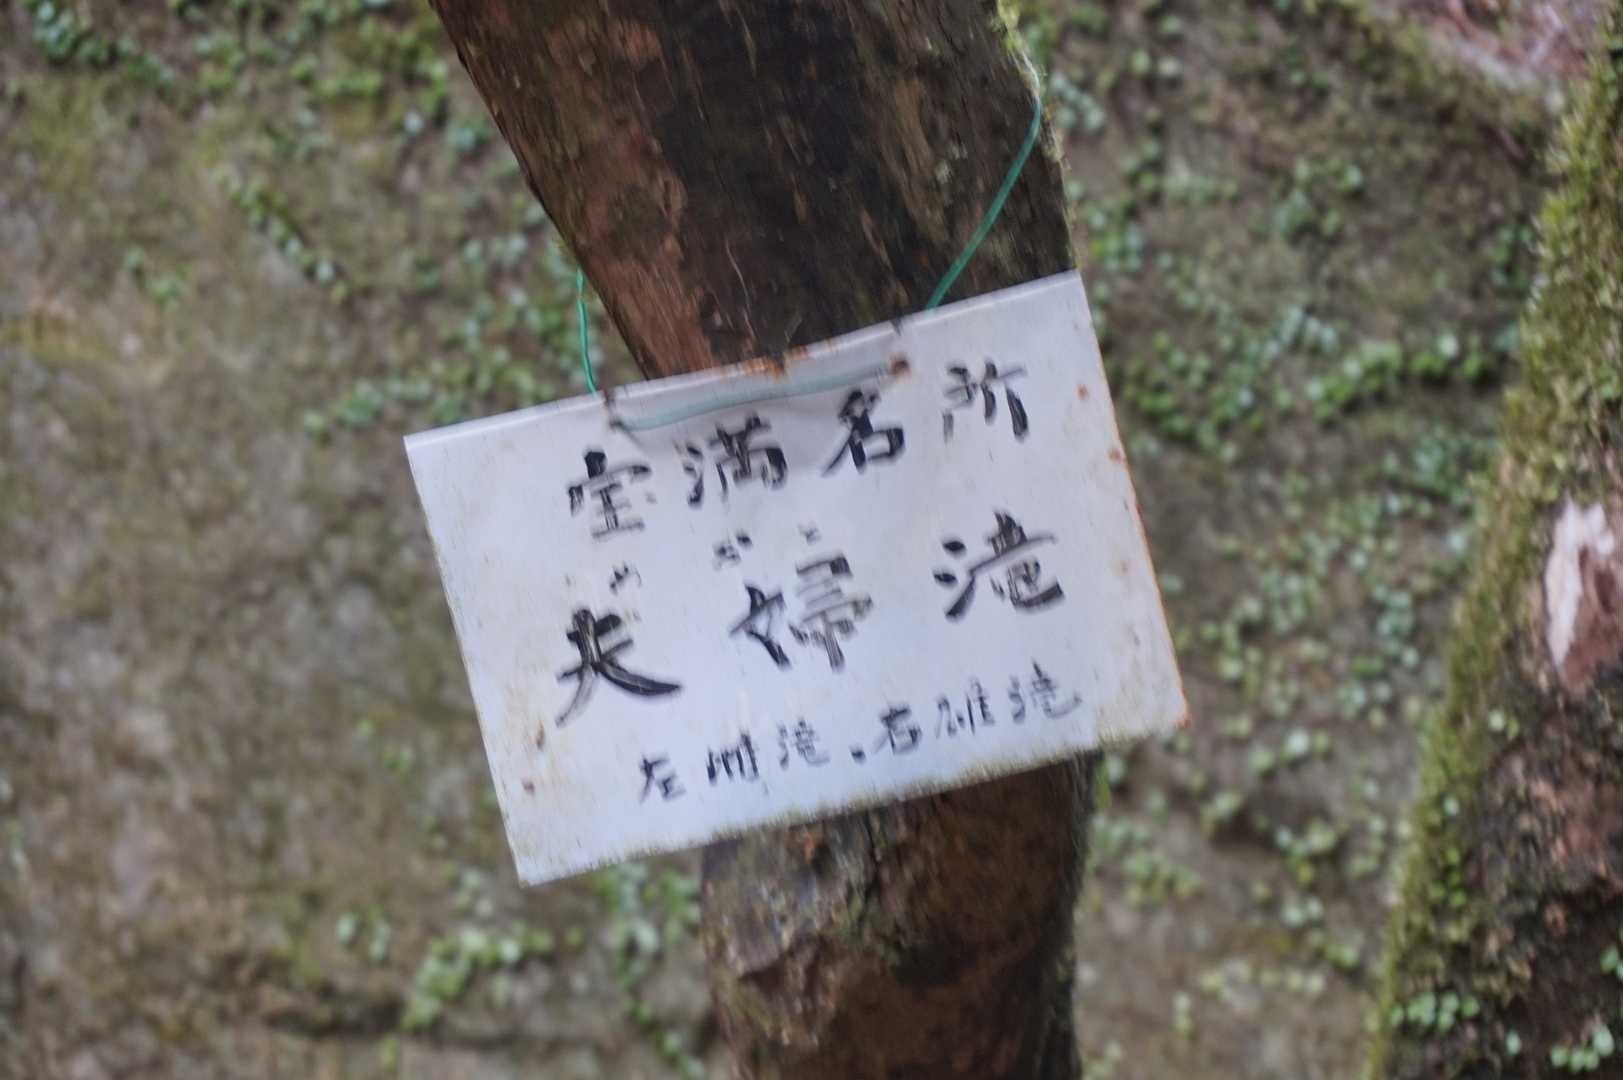 宝満名所
めおと
夫婦滝
左雌滝、右雄滝